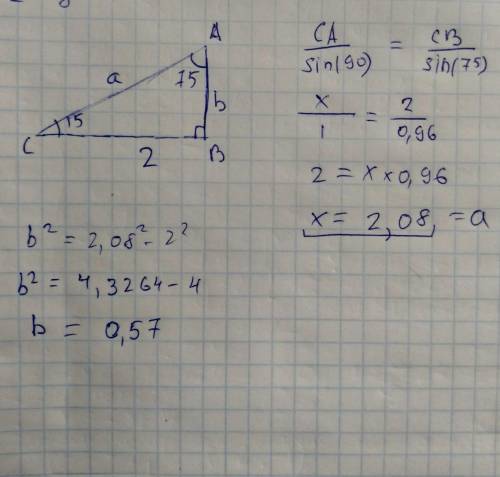 A
a
75
b
15
C
2
B
CA/sin(90) = CB/sin(75)
x/1 = 2/0,96
2 = x × 0,96
x = 2,08, = a
b² = 2,08² - 2²
b² = 4,3264 - 4
b = 0,57